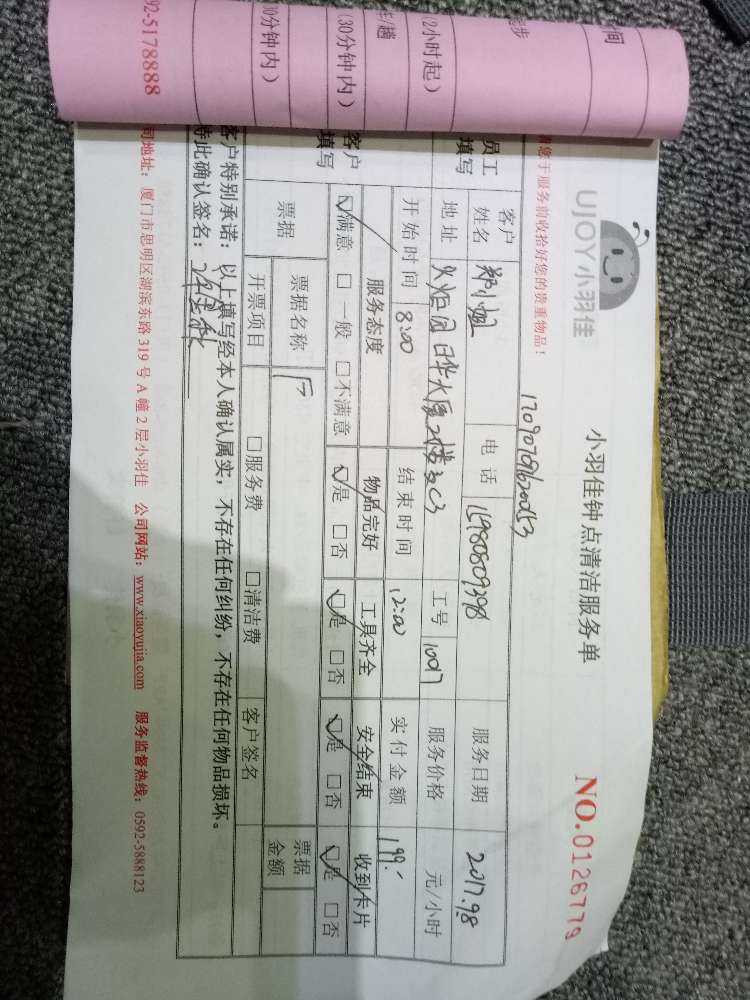 UJOY小羽佳
小羽佳钟点清洁服务单
NO.0126779
您于服务前收拾好您的贵重物品！
1709079620053
员工填写
客户姓名 郑小姐 电话 15980809398 服务日期 2017.9.8
地址 火炬园日华大厦 工号 10017 服务价格 元/小时
开始时间 8:00 结束时间 12:00 实付金额 199.-
客户填写
服务态度 物品完好 工具齐全 安全结束 收到卡片
☑满意 □一般 □不满意 ☑是 □否 ☑是 □否 ☑是 □否 ☑是 □否
票据 票据名称 票据金额
开票项目 □服务费 □清洁费 客户签名
客户特别承诺：以上填写经本人确认属实，不存在任何纠纷，不存在任何物品损坏。
特此确认签名：
司地址：厦门市思明区湖滨东路 319 号 A 幢 2 层小羽佳 公司网站：www.xiaoyujia.com 服务监督热线：0592-5888123
间
步
2小时起）
/趟
（30分钟内）
0分钟内）
92-5178888